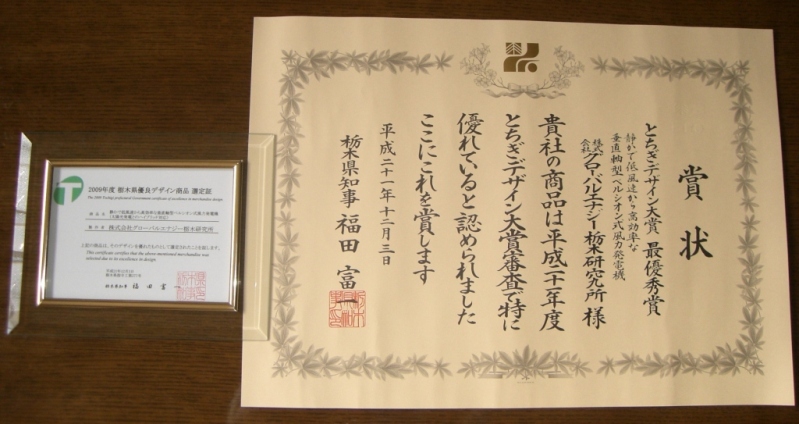 2009年度 栃木県優良デザイン商品 選定証
株式会社グローバルエナジー栃木研究所
上記の商品は、そのデザインを優れたものとして選定されたことを証します。
This certificate certifies that the above mentioned merchandise was
selected due to its excellence in design.
栃木県知事 福田富一
賞状
とちぎデザイン大賞 最優秀賞
静かで低風速から高効率な
垂直軸型ベルシオン式風力発電機
株式会社グローバルエナジー栃木研究所 様
貴社の商品は平成二十一年度
とちぎデザイン大賞審査で特に
優れていると認められました
ここにこれを賞します
平成二十一年十二月三日
栃木県知事 福田富一